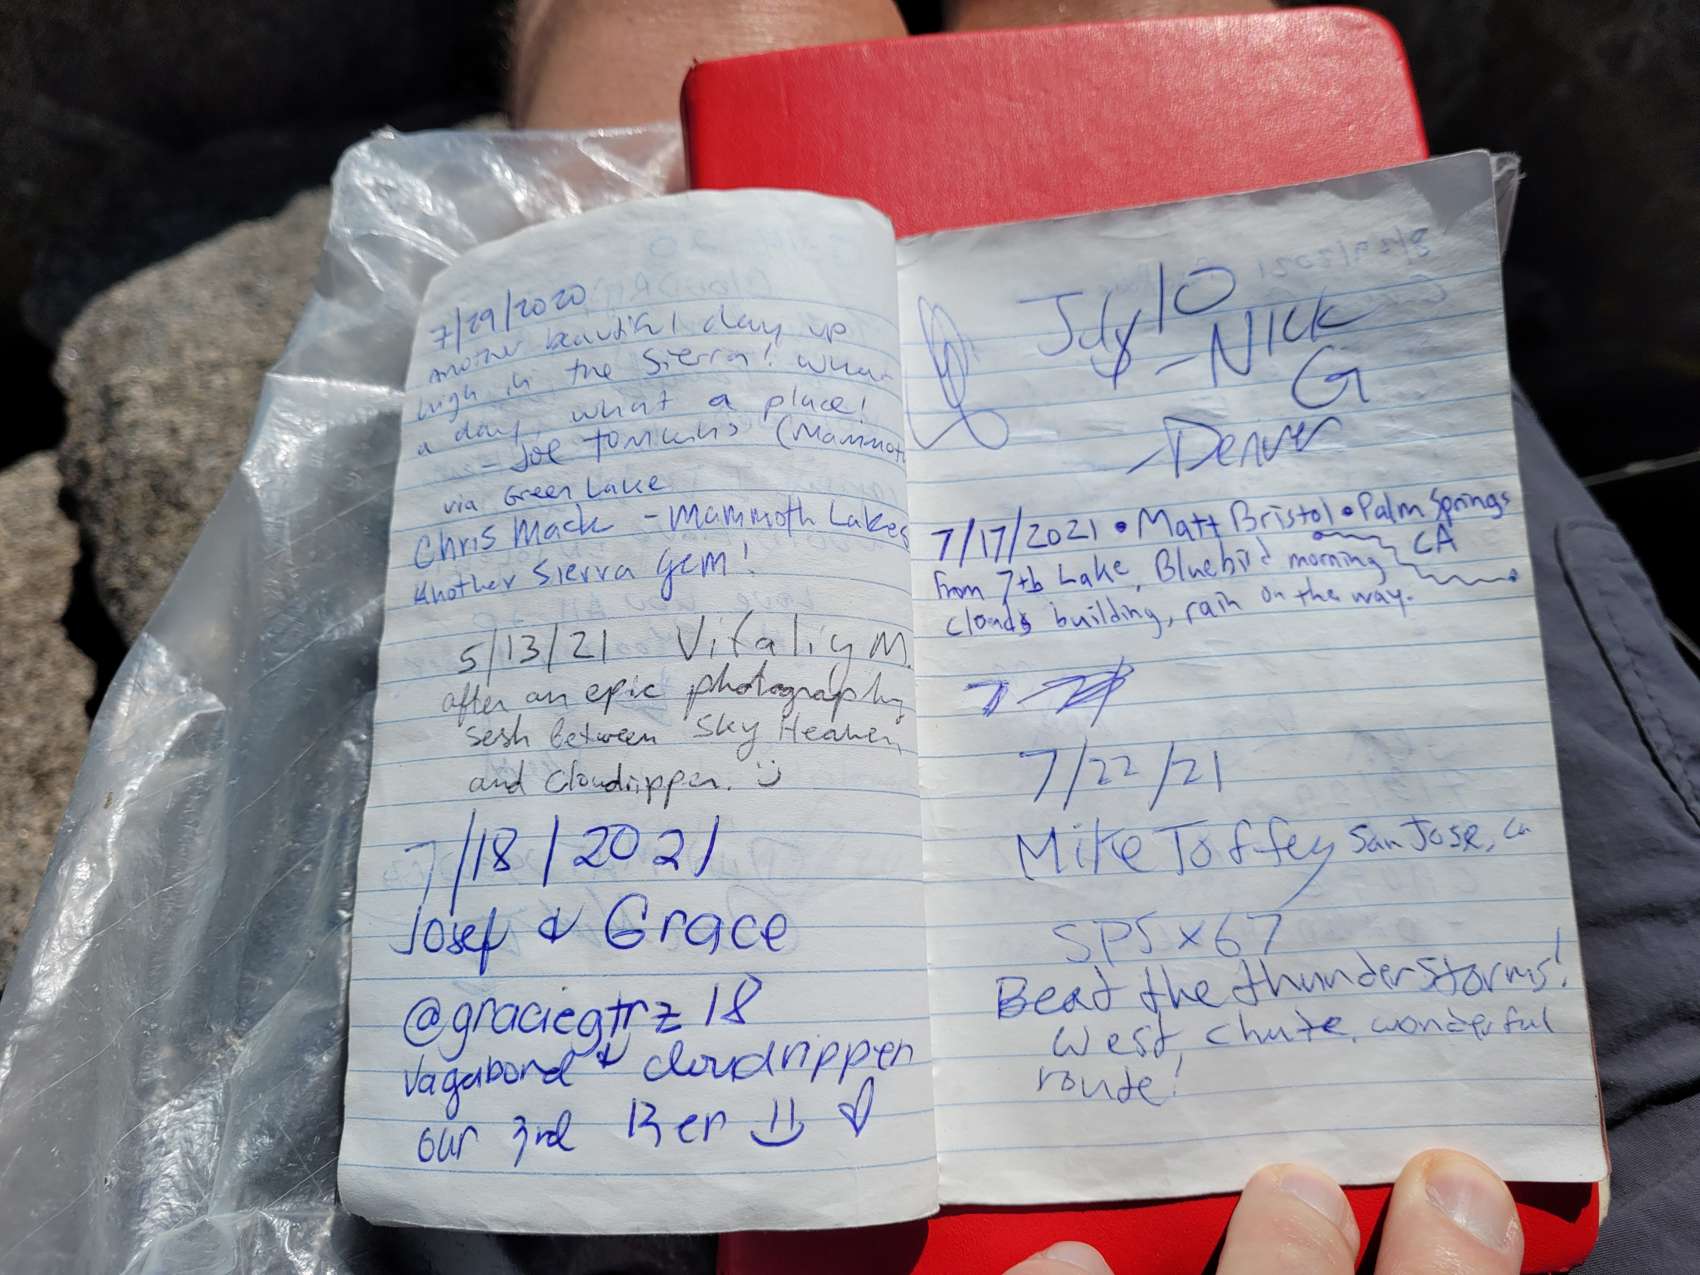 7/29/2020
Another beautiful day up
high in the Sierra! What
a day, what a place!
- Joe (Mammoth
via Green Lake
Chris Mack - Mammoth Lakes
Another Sierra gem!
5/13/21 Vitaliy M.
after an epic photography
sesh between Sky Heaven
and Cloudripper.
7/18/2021
Josef & Grace
@graciegtrz18
Vagabond & cloudripper
our 3rd 13er
July 10
- Nick
G
- Denver
7/17/2021 • Matt Bristol • Palm Springs
CA
From 7th Lake, Bluebird morning
clouds building, rain on the way.
7/22/21
Mike Toffey San Jose, Ca
SPS x 67
Beat the thunderstorms!
West chute, wonderful
route!